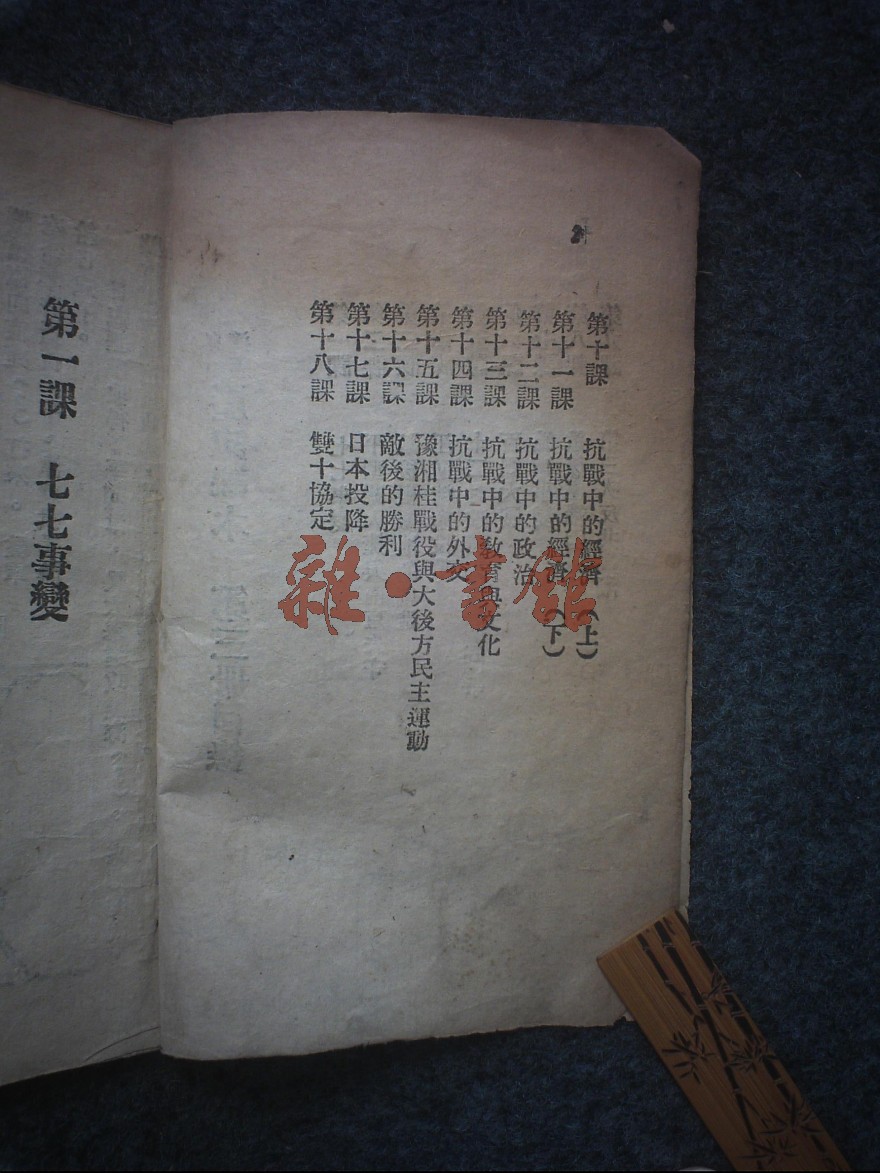 第十課　抗戰中的經濟（上）
第十一課　抗戰中的經濟（下）
第十二課　抗戰中的政治
第十三課　抗戰中的敎育與文化
第十四課　抗戰中的外交
第十五課　豫湘桂戰役與大後方民主運動
第十六課　敵後的勝利
第十七課　日本投降
第十八課　雙十協定
第一課　七七事變
雜·書館